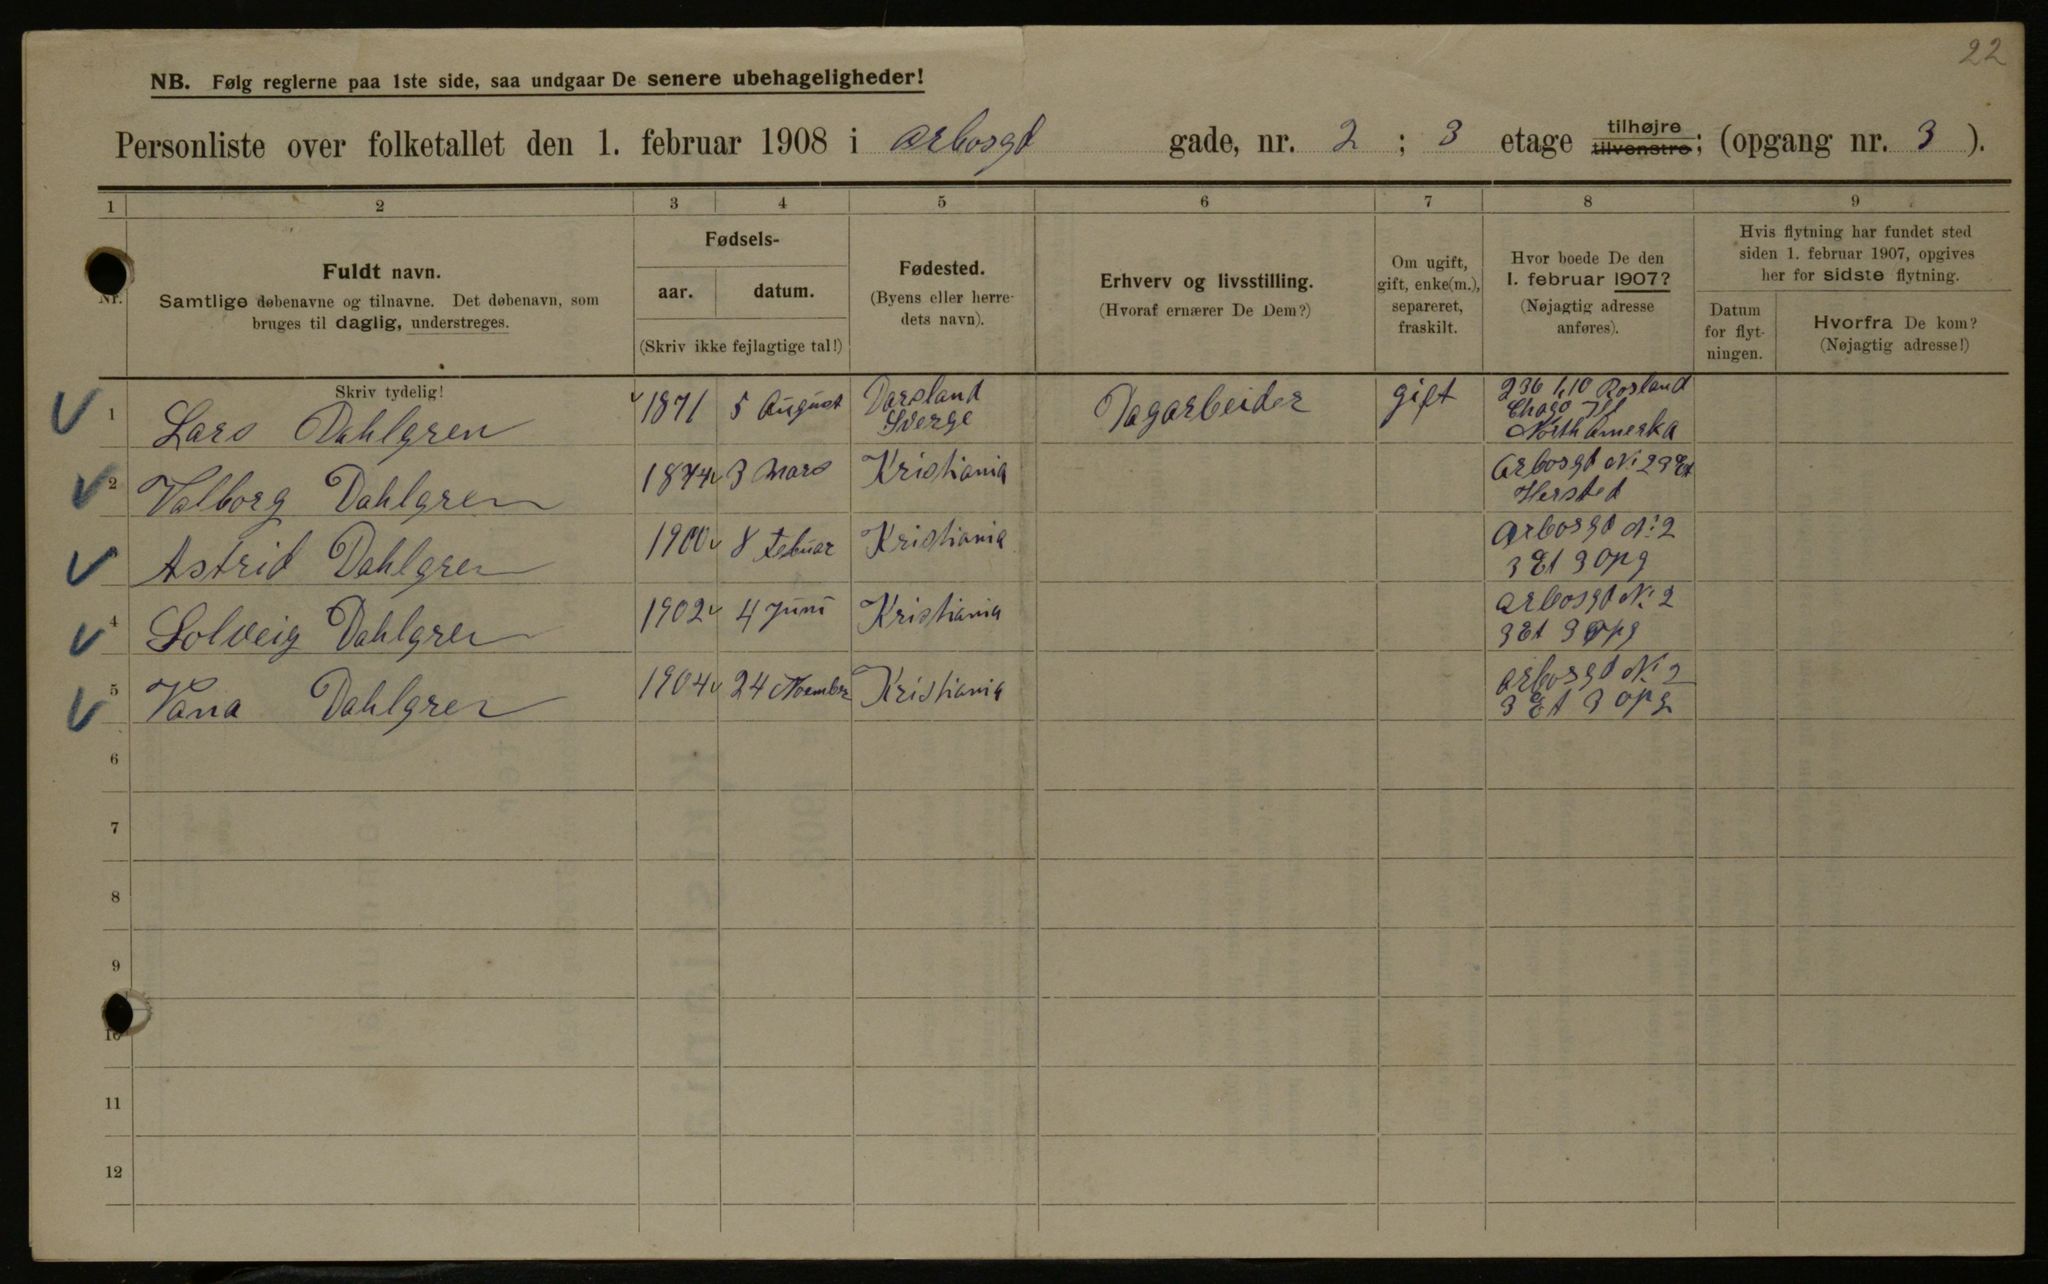 22
NB. Følg reglerne paa 1ste side, saa undgaar De senere ubehageligheder!
Personliste over folketallet den 1. februar 1908 i Arbosgd gade, nr. 2 ; 3 etage tilhøjre tilvenstre; (opgang nr. 3 ).
1 2 3 4 5 6 7 8 9
Nr.
Fuldt navn.
Samtlige døbenavne og tilnavne. Det døbenavn, som
bruges til daglig, understreges.
Fødsels-
aar. datum.
(Skriv ikke fejlagtige tal!)
Fødested.
(Byens eller herre-
dets navn).
Erhverv og livsstilling.
(Hvoraf ernærer De Dem?)
Om ugift,
gift, enke(m.),
separeret,
fraskilt.
Hvor boede De den
1. februar 1907?
(Nøjagtig adresse
anføres).
Hvis flytning har fundet sted
siden 1. februar 1907, opgives
her for sidste flytning.
Datum
for flyt-
ningen.
Hvorfra De kom?
(Nøjagtig adresse!)
Skriv tydelig!
1 Lars Dahlgren 1871 5 August Darsland
Sverge
Dagarbeider gift 236 Rosland
Chago Ill
North Amerka
2 Valborg Dahlgren 1874 3 Mars Kristiania Arbosgd N: 2 3 Et
3 Astrid Dahlgren 1900 8 Februar Kristiania Arbosgd N: 2
3 Et 3 opg
4 Solveig Dahlgren 1902 4 Juni Kristiania Arbosgd N: 2
3 Et 3 opg
5 Vana Dahlgren 1904 24 November Kristiania Arbosgd N: 2
3 Et 3 opg
6
7
8
9
10
11
12